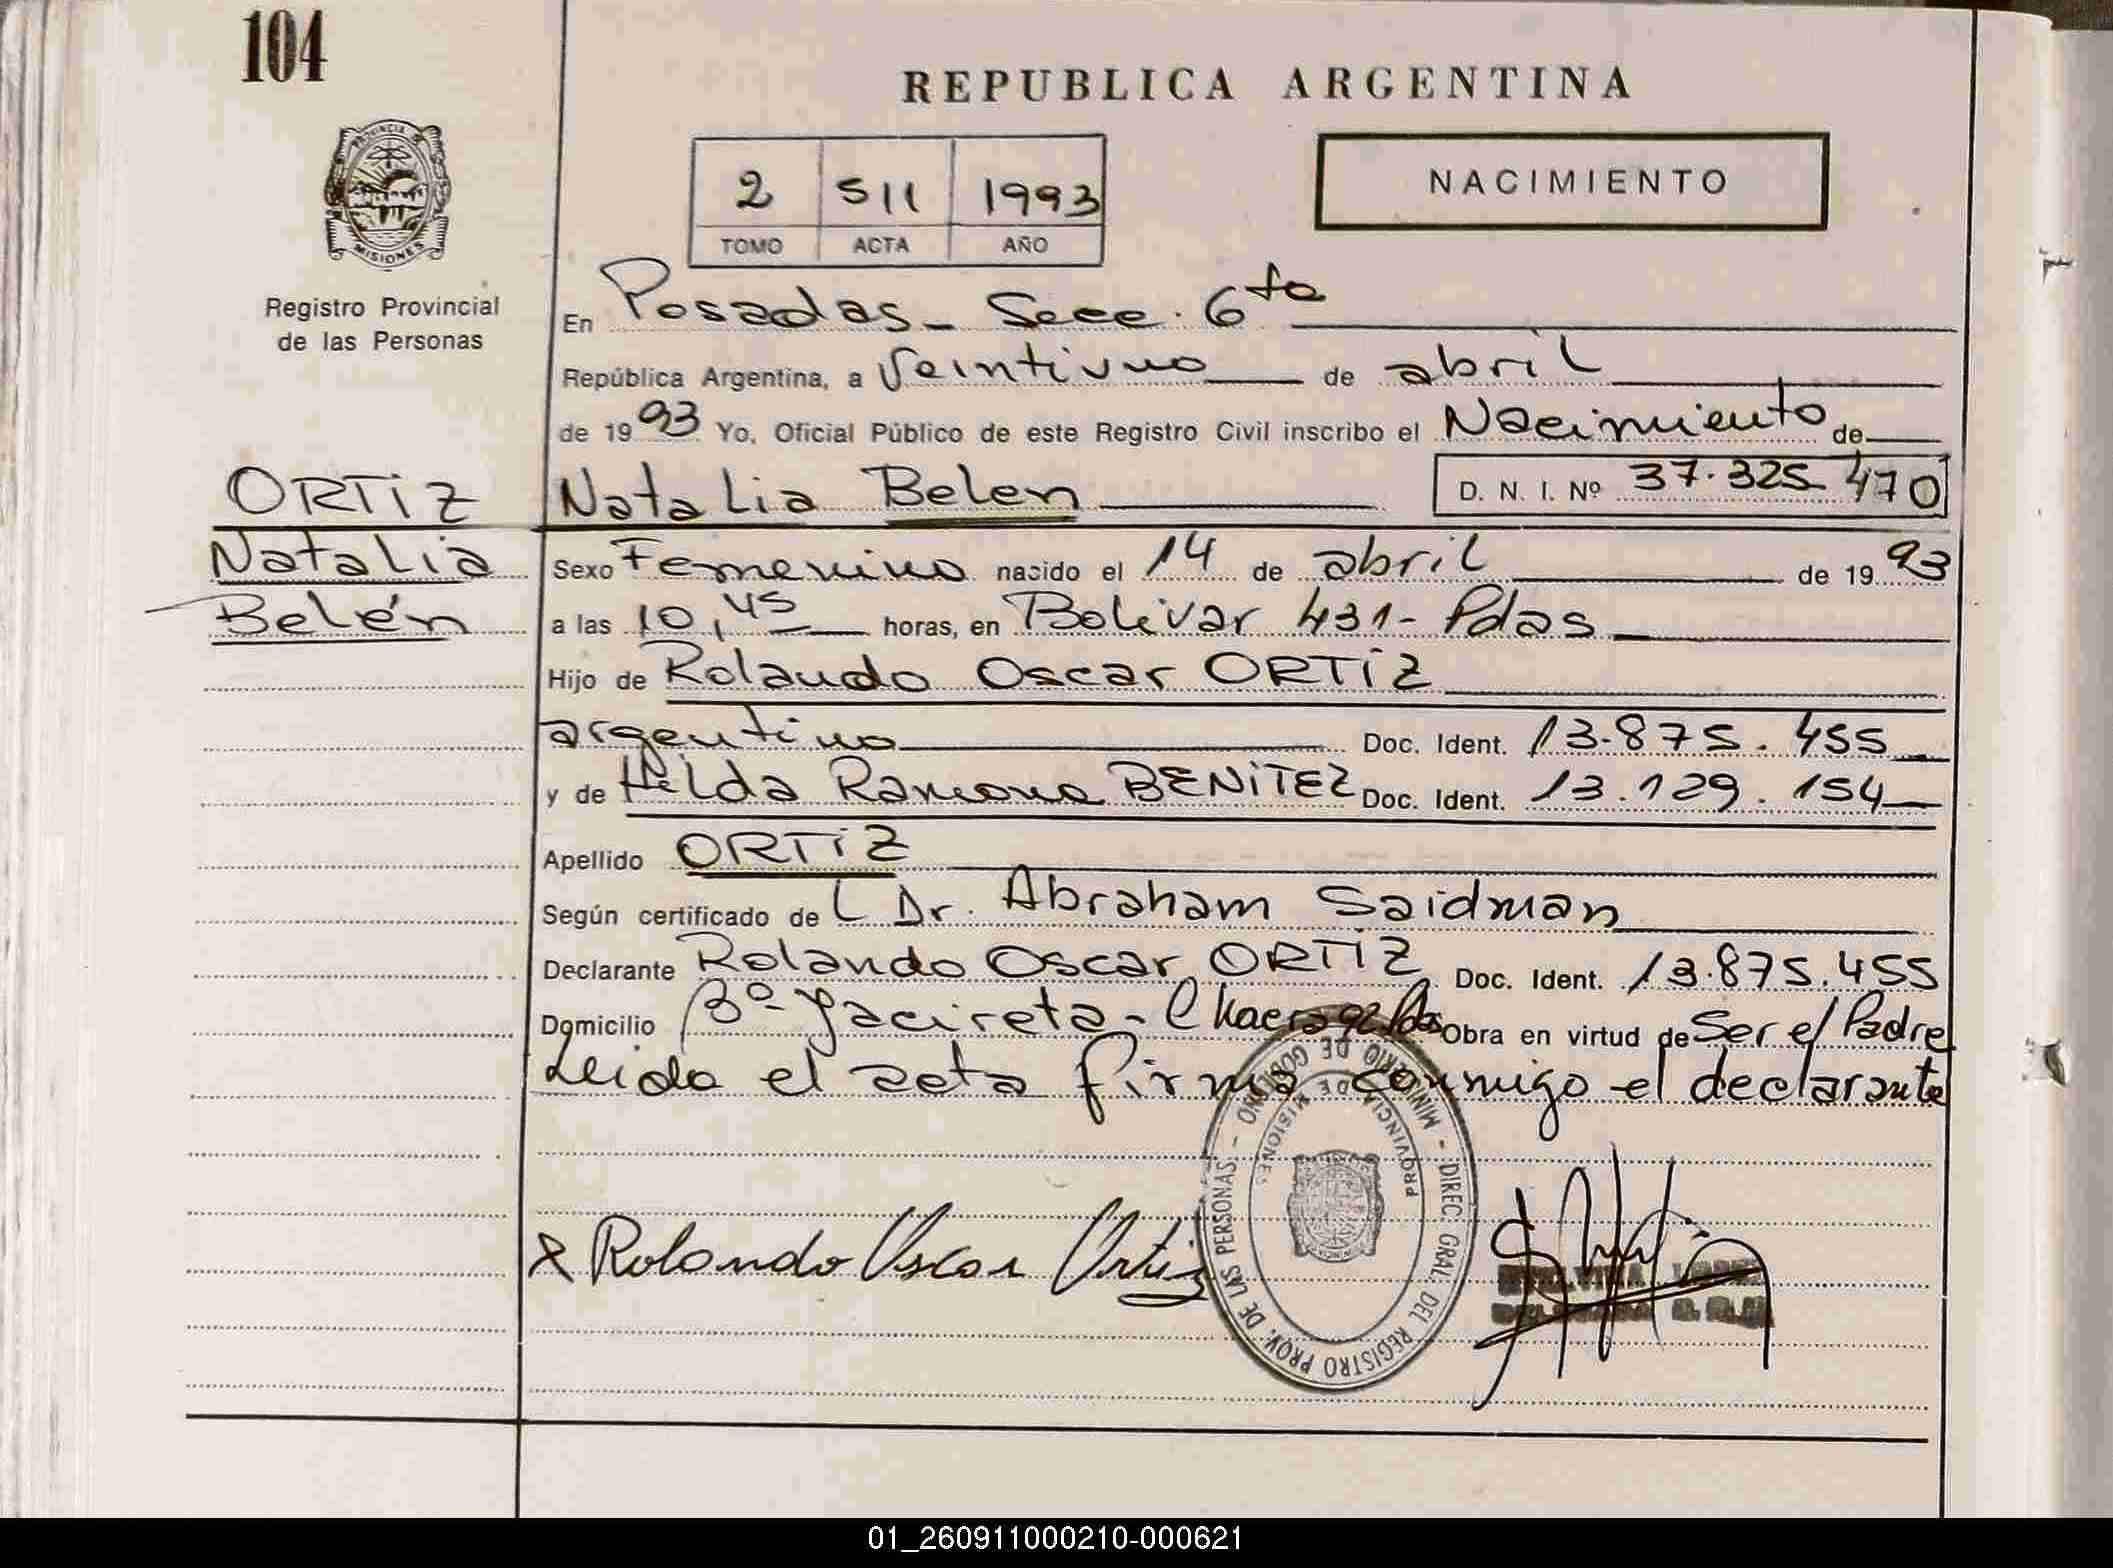 104
REPUBLICA ARGENTINA
PROVINCIA DE MISIONES
2 511 1993
TOMO ACTA AÑO
NACIMIENTO
Registro Provincial
de las Personas
En Posadas - Secc. 6ta
República Argentina, a Veintiuno de abril
de 1993 Yo, Oficial Público de este Registro Civil inscribo el Nacimiento de
ORTiZ
Natalia
Belén
Natalia Belen D. N. I. Nº 37.325.470
Sexo Femenino nacido el 14 de abril de 1993
a las 10,45 horas, en Bolivar 431 - Pdas
Hijo de Rolando Oscar ORTiZ
argentino Doc. Ident. 13.875.455
y de Hilda Ramona BENiTEZ Doc. Ident. 13.129.154
Apellido ORTiZ
Según certificado de Dr. Abraham Saidman
Declarante Rolando Oscar ORTIZ Doc. Ident. 13.875.455
Domicilio Bº Yacireta - Obra en virtud de Ser el Padre
Leida el acta firma conmigo el declarante
MINISTERIO DE GOBIERNO - DIREC. GRAL. DEL REGISTRO PROV. DE LAS PERSONAS -
PROVINCIA DE MISIONES
x Rolando Oscar Ortiz
01_260911000210-000621